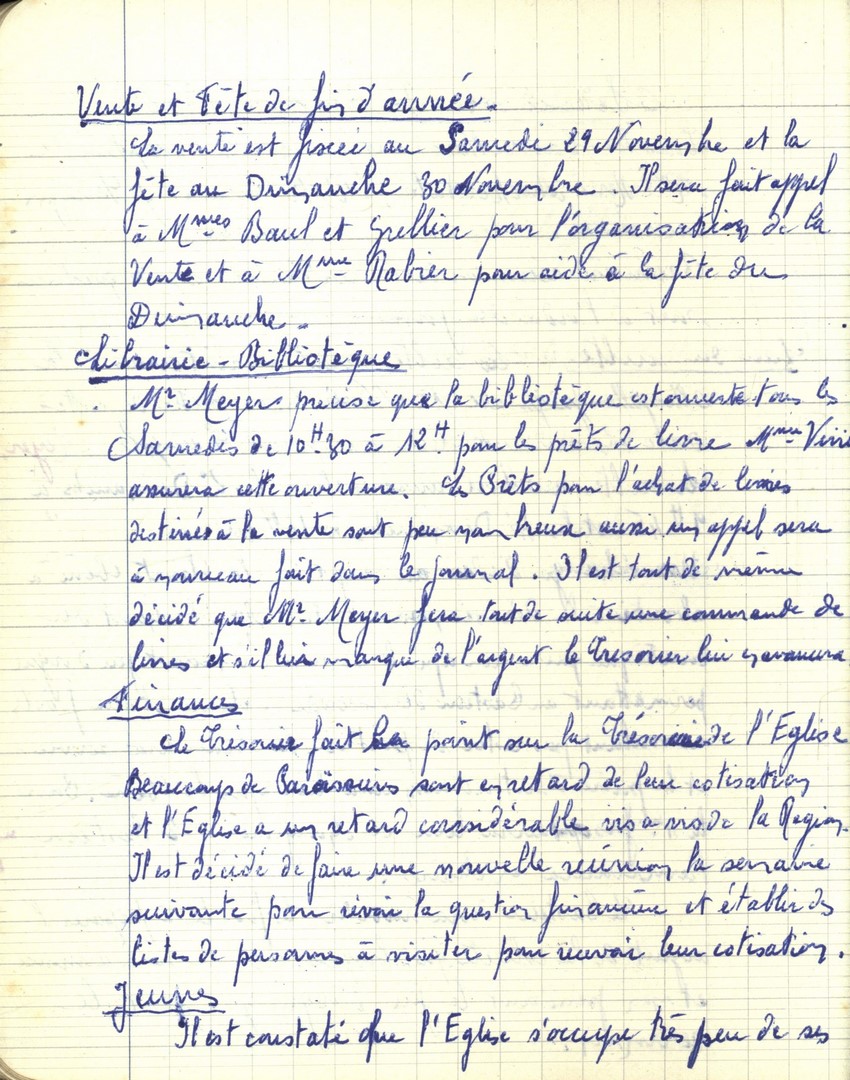 Vente et Fête de fin d'année.
La vente est fixée au Samedi 29 Novembre et la
fête au Dimanche 30 Novembre. Il sera fait appel
à Mmes Baul et Grellier pour l'organisation de la
Vente et à Mme Rabier pour aide à la fête du
Dimanche.
Librairie - Bibliotèque
Mr Meyer précise que la bibliotèque est ouverte tous les
Samedis de 10H30 à 12H pour les prêts de livre Mme
assurera cette ouverture. Les Prêts pour l'achat de livres
destinés à la vente sont peu nombreux aussi un appel sera
à nouveau fait dans le journal. Il est tout de même
décidé que Mr Meyer fera tout de suite une commande de
livres et s'il lui manque de l'argent le Trésorier lui en avancera
Finances
Le Trésorier fait le point sur la Trésorerie de l'Eglise
Beaucoup de Paroissiens sont en retard de leur cotisation
et l'Eglise a un retard considérable vis a vis de la Region.
Il est décidé de faire une nouvelle reéunion la semaine
suivante pour révoir la question financière et établir des
listes de personnes à visiter pour recevoir leur cotisation.
Jeunes
Il est constaté que l'Eglise s'occupe très peu de ses